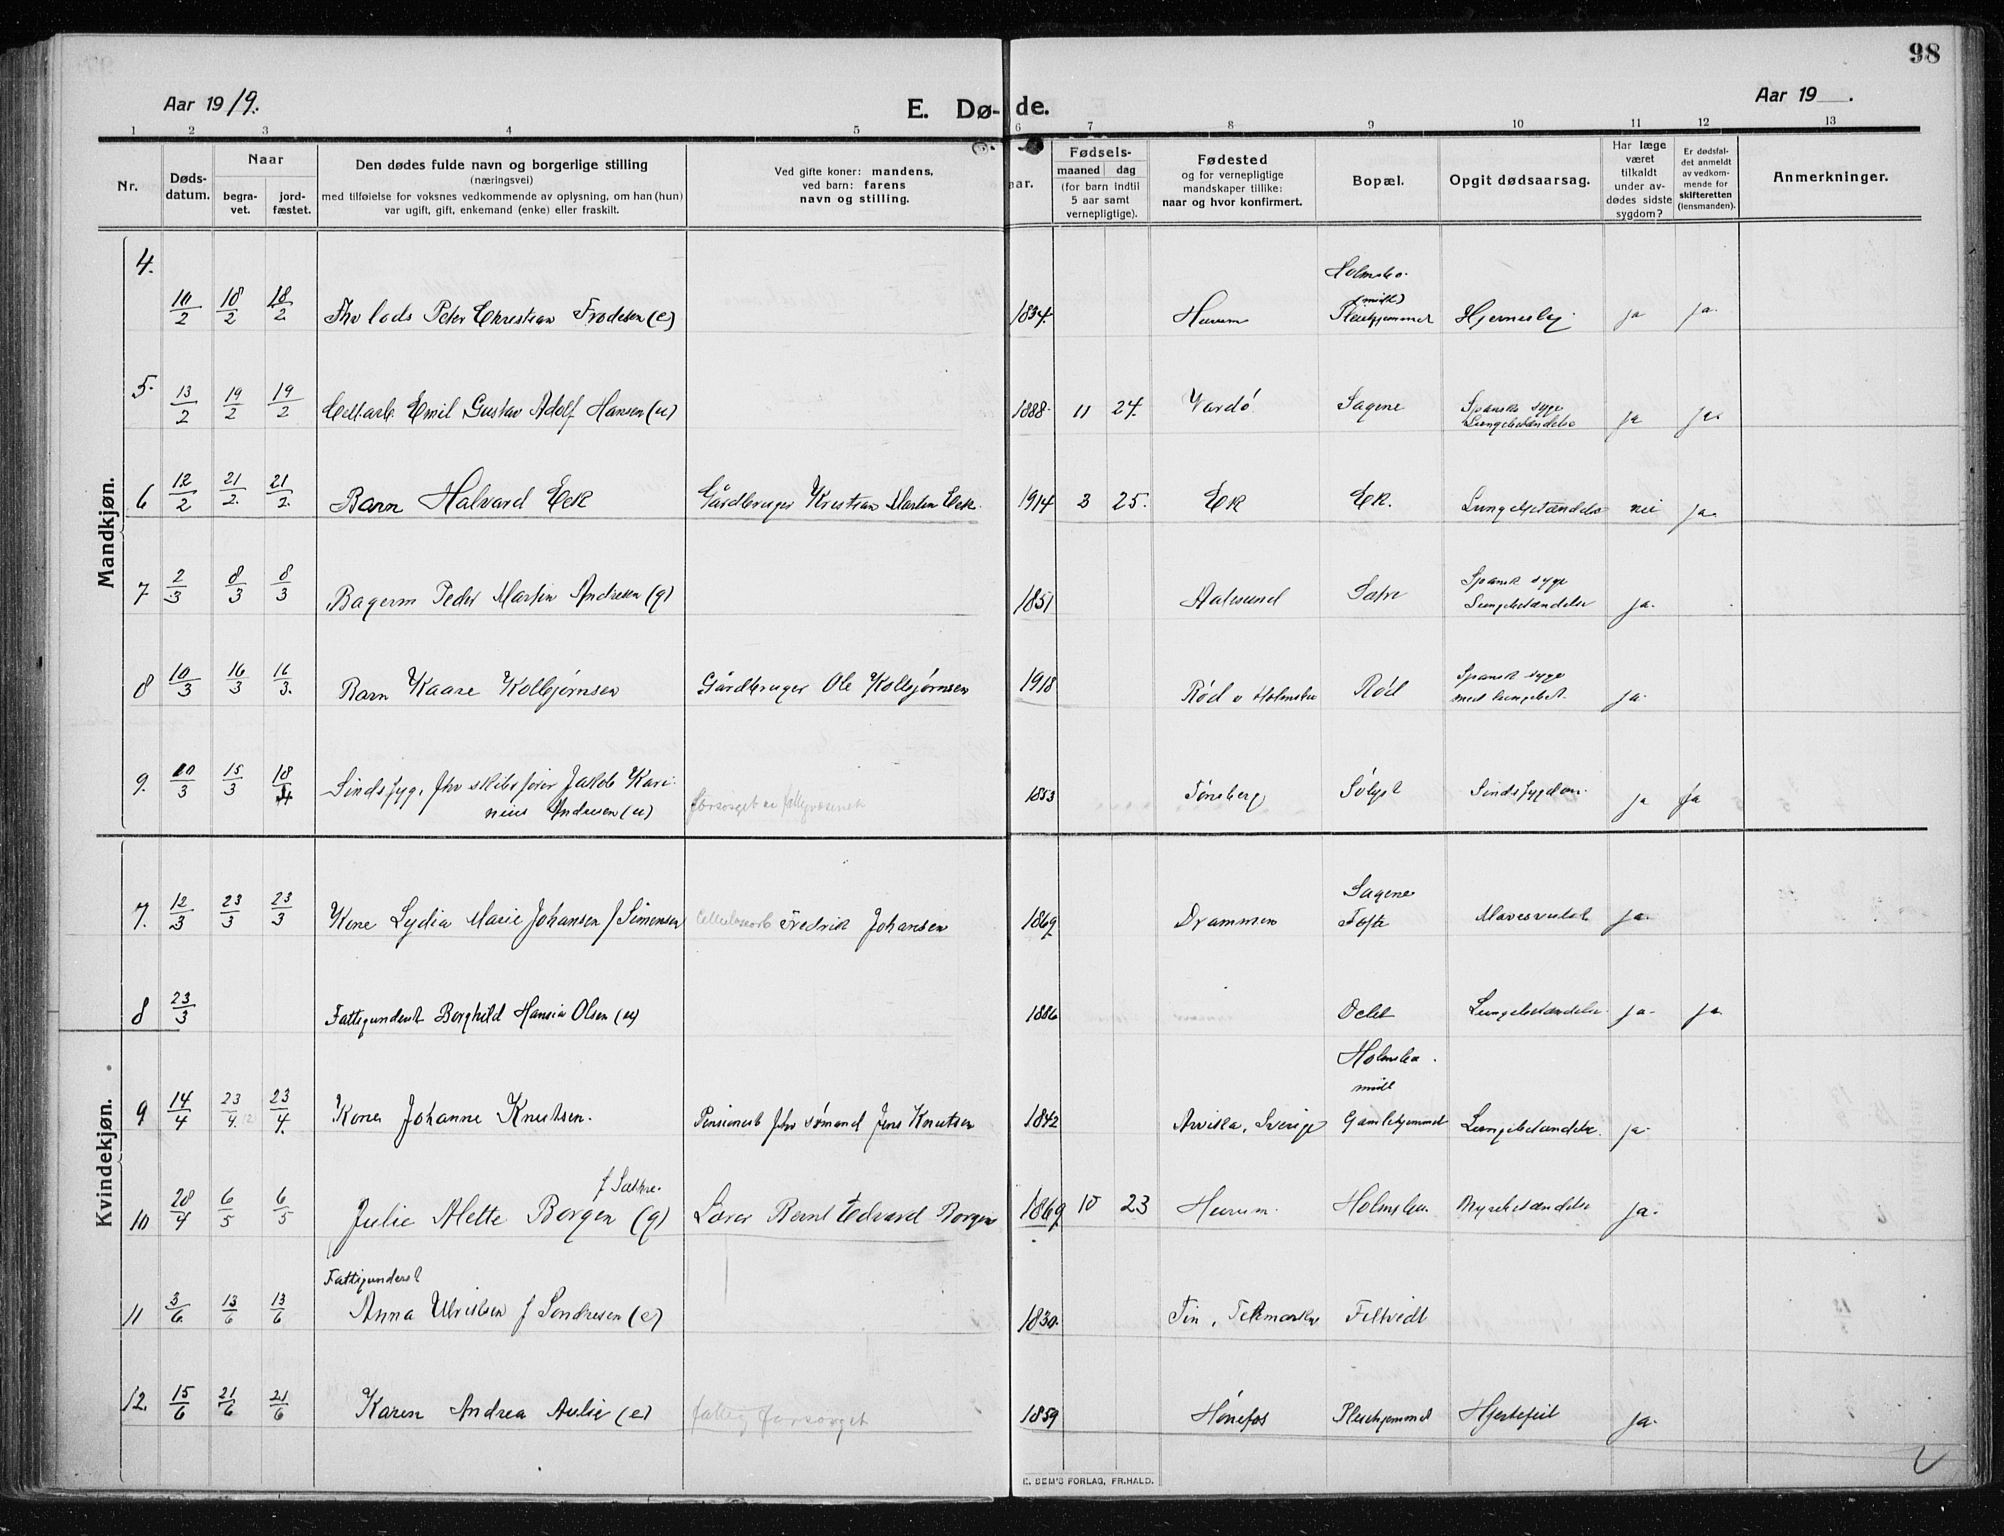 98
Aar 1919.
E. Dø- de.
Aar 19 .
1 2 3 4 5 6 7 8 9 10 11 12 13
Nr.
Døds-
datum.
Naar
begra-
vet.
jord-
fæstet.
Den dødes fulde navn og borgerlige stilling
(næringsvei)
med tilføielse for voksnes vedkommende av oplysning, om han (hun)
var ugift, gift, enkemand (enke) eller fraskilt.
Ved gifte koner: mandens,
ved barn: farens
navn og stilling.
aar.
Fødsels-
maaned dag
(for barn indtil
5 aar samt
vernepligtige).
Fødested
og for vernepligtige
mandskaper tillike:
naar og hvor konfirmert.
Bopæl.
Opgit dødsaarsag.
Har læge
været
tilkaldt
under av-
dødes sidste
sygdom?
Er dødsfal-
det anmeldt
av vedkom-
mende for
skifteretten
(lensmanden).
Anmerkninger.
Mandkjøn.
4. Holmsbo.
10/2 18/2 18/2 Fhv lods Peter Christian Frodesen (e) 1834. Hurum Pleiehjemmet Hjerneslag ja ja.
5. 13/2 19/2 19/2 Cell.arb. Emil Gustav Adolf Hansen (u) 1888. 11 24. Vardø Sagene Spanske syge ja ja.
Lungebetændelse
6 12/2 21/2. 21/2. Barn Halvard Eek Gårdbruger Kristian Martin Eek. 1914 3 25. Ek Ek. Lungebetændelse nei ja.
7 2/3 8/3 8/3 Bagerm Peder Martin Andresen (g) 1851 Aalesund Sætre Spansk syge
Lungebetændelse ja.
8 10/3 16/3 16/3. Barn Kaare Kolbjørnsen Gårdbruger Ole Kolbjørnsen 1918 Rød v Holmsbu Rød Spansk syge
med lungebet. ja.
9. 10/3 15/3 18/4 Sindssyg, fhv skibsfører Jakob Kari- 1853 Tønsberg Solyst Sindssygdom. ja ja
nius Andresen (u) forsørget av fattigvæsenet
Kvindekjøn.
Sagene
7. 12/3 23/3 23/3 Kone Lydia Marie Johansen f Simensen Cellulosearb Fredrik Johansen 1869 Drammen Tofte Mavesvulst ja.
8 23/3 Fattigunderst Borghild Hansia Olsen (u) 1886 Oclet Lungebetændelse ja. ja
Holmsbo.
9 14/4 23/4. 23/4. Kone Johanne Knutsen. Pensionert fhv sømand Jens Knutsen 1842 Arvika, Sverige Gamlehjemmet Lungebetændelse. ja.
f Sætre.
10 28/4 6/5 6/5 Julie Alette Borgen (g) Lærer Bernt Edvard Borgen 1869 10 23 Hurum. Holmsbu. Nyrebetændelse ja.
Fattigunderst
11 3/6. 13/6 13/6 Anna Ulriksen f Sondresen (e) 1830. Tin, Telemarken Filtvedt
12. 15/6 21/6 21/6 Karen Andrea Aulie (e) fattig forsørget 1859 Hønefos Pleiehjemmet Hjertefeil ja.
E. SEM'S FORLAG, FR.HALD.